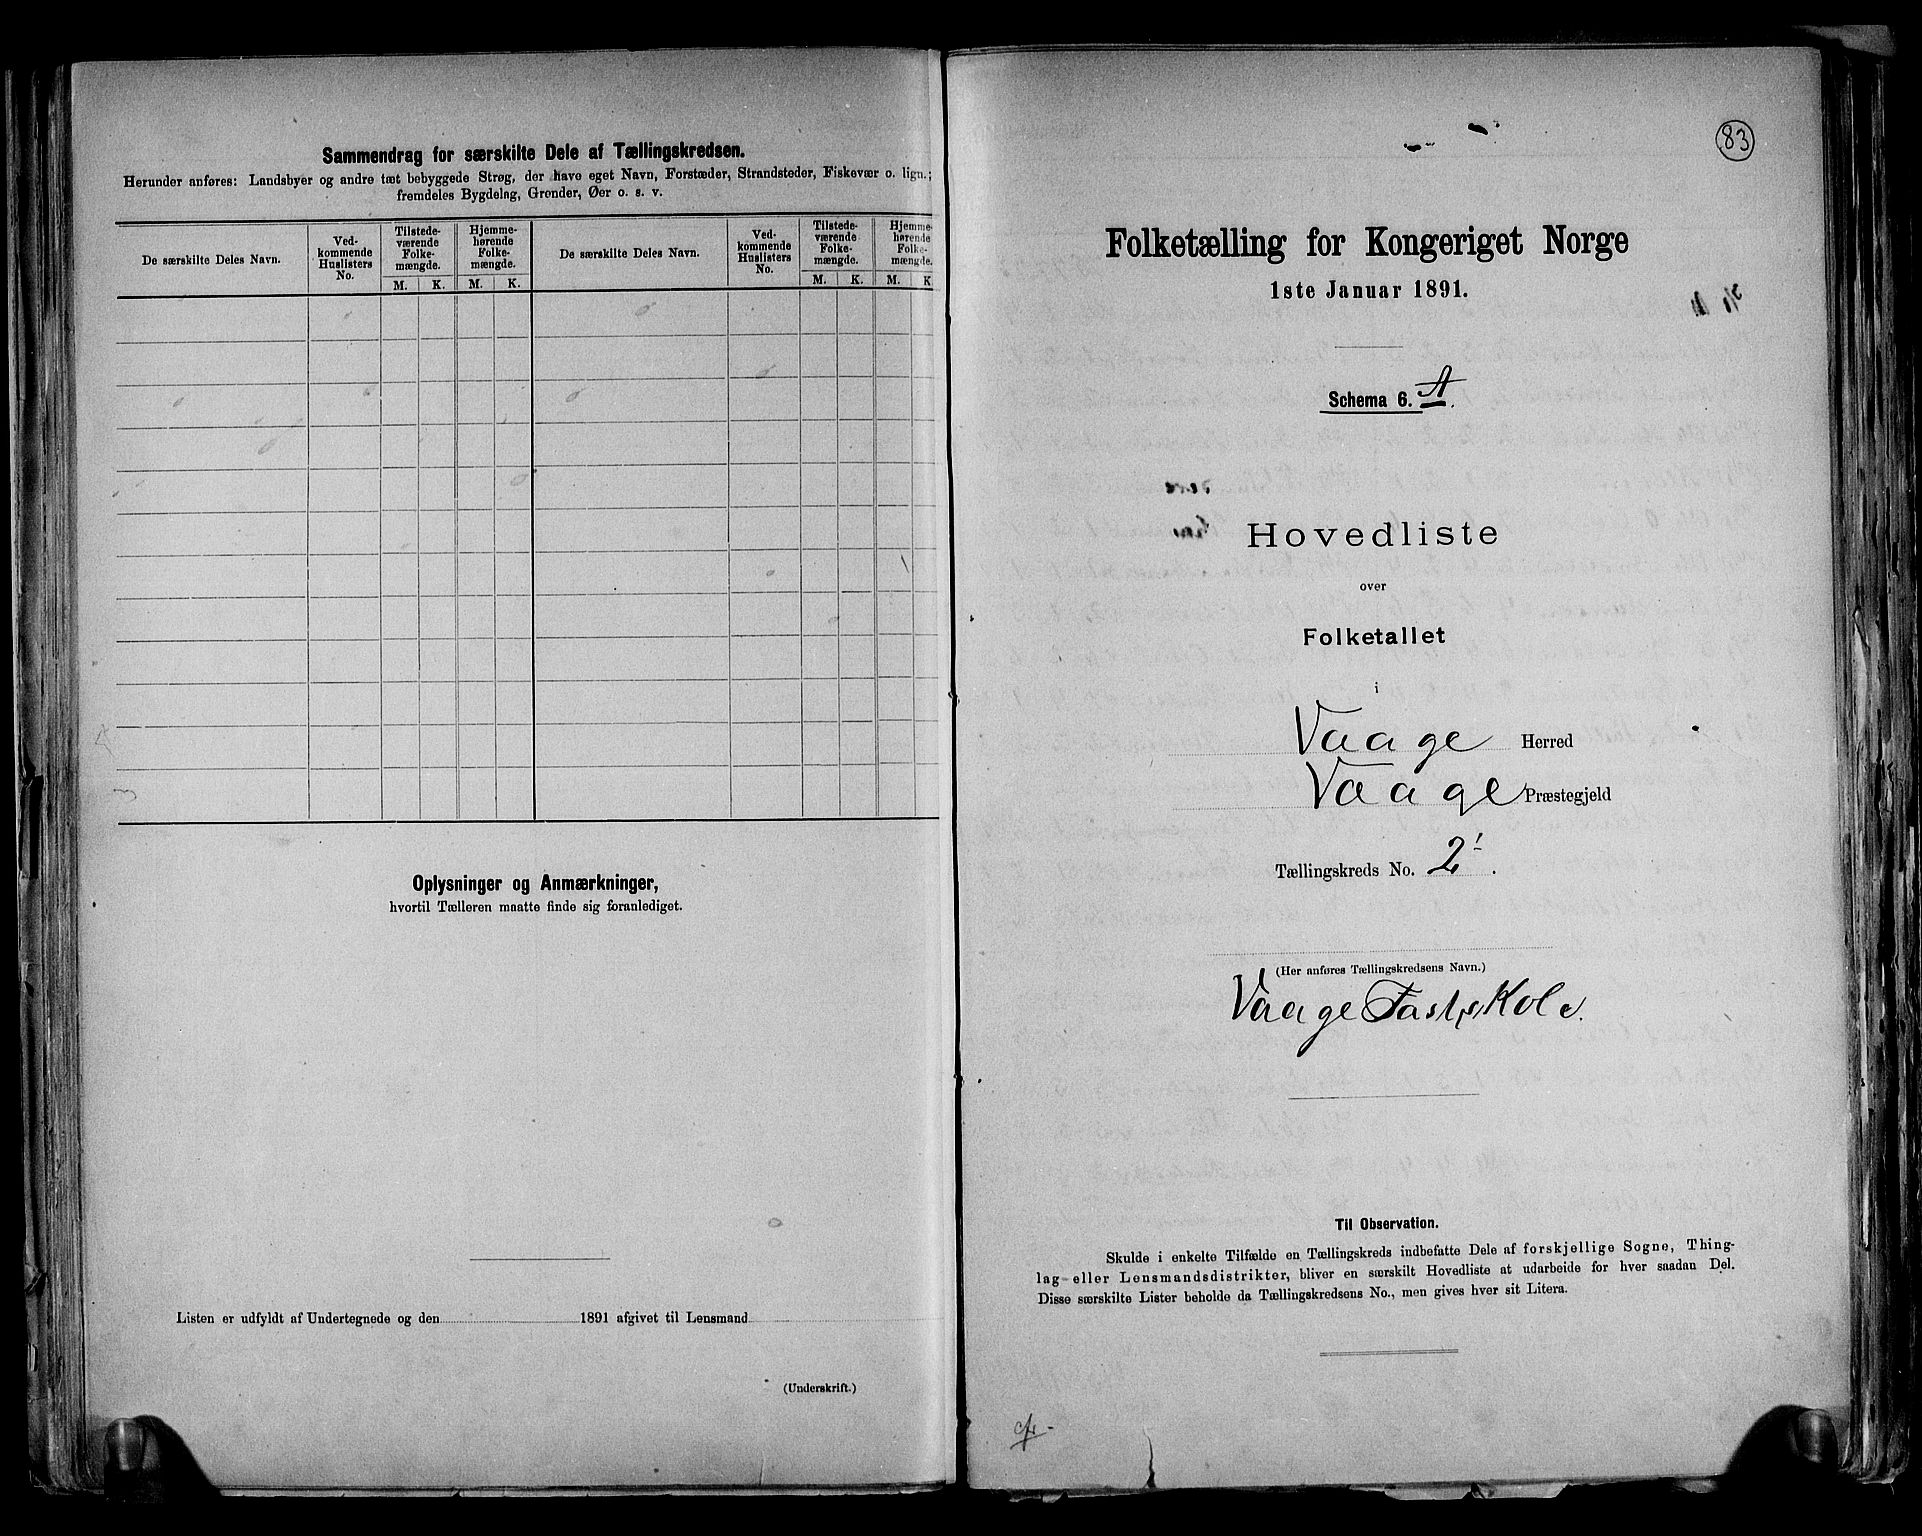 Sammendrag for særskilte Dele af Tællingskredsen.
Herunder anføres: Landsbyer og andre tæt bebyggede Strøg, der have eget Navn, Forstæder, Strandsteder, Fiskevær o. lign.;
fremdeles Bygdelag, Grender, Øer o. s. v.
De særskilte Deles Navn.
Ved-
kommende
Huslisters
No.
Tilstede-
værende
Folke-
mængde.
Hjemme-
hørende
Folke-
mængde.
De særskilte Deles Navn.
Ved-
kommende
Huslisters
No.
Tilstede-
værende
Folke-
mængde.
Hjemme-
hørende
Folke-
mængde.
M. K. M. K. M. K. M. K
Oplysninger og Anmærkninger,
hvortil Tælleren maatte finde sig foranlediget.
Listen er udfyldt af Undertegnede og den 1891 afgivet til Lensmand
(Underskrift.)
83
Folketælling for Kongeriget Norge
1ste Januar 1891.
Schema 6. A.
Hovedliste
over
Folketallet
i
Vaage Herred
Vaage Præstegjeld
Tællingskreds No. 2.
(Her anføres Tællingskredsens Navn.)
Vaage Fastskole.
Til Observation.
Skulde i enkelte Tilfælde en Tællingskreds indbefatte Dele af forskjellige Sogne, Thing-
lag eller Lensmandsdistrikter, bliver en særskilt Hovedliste at udarbeide for hver saadan Del.
Disse særskilte Lister beholde da Tællingskredsens No., men gives hver sit Litera.